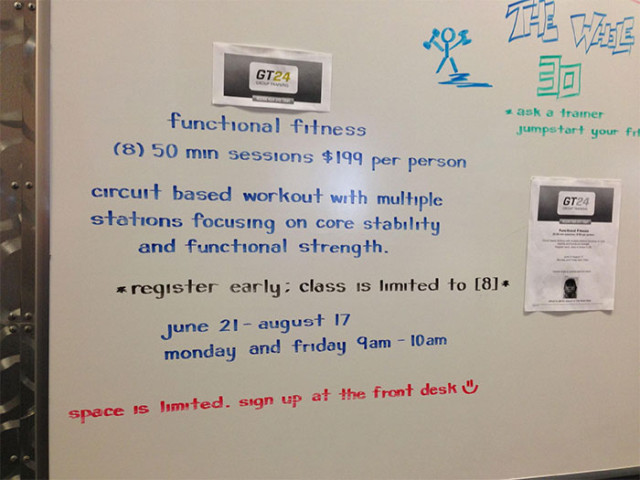 GT24
GROUP TRAINING
functional fitness
(8) 50 min sessions $199 per person
circuit based workout with multiple
stations focusing on core stability
and functional strength.
*register early; class is limited to [8]*
june 21 - august 17
monday and friday 9am - 10am
space is limited. sign up at the front desk
THE WHOLE
30
*ask a trainer
jumpstart your fit
GT24
Functional Fitness